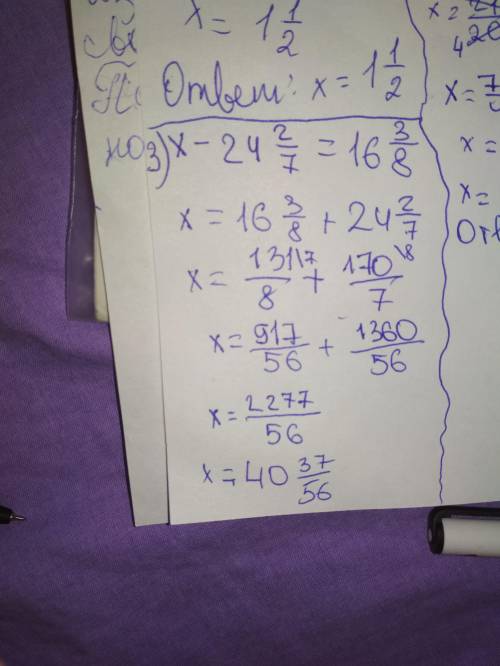 x = 1 1/2
Ответ: x = 1 1/2
3) x - 24 2/7 = 16 3/8
x = 16 3/8 + 24 2/7
x = 131\7/8 + 170\8/7
x = 917/56 + 1360/56
x = 2277/56
x = 40 37/56
x =
x = 7
x =
x =